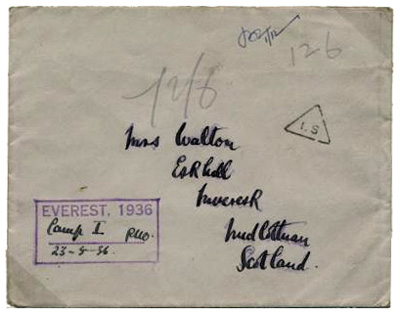 12-6
12/6
I.S
Mrs Walton
Eskhill
Inveresk
Midlothian
Scotland.
EVEREST, 1936
Camp I
23-5-36.